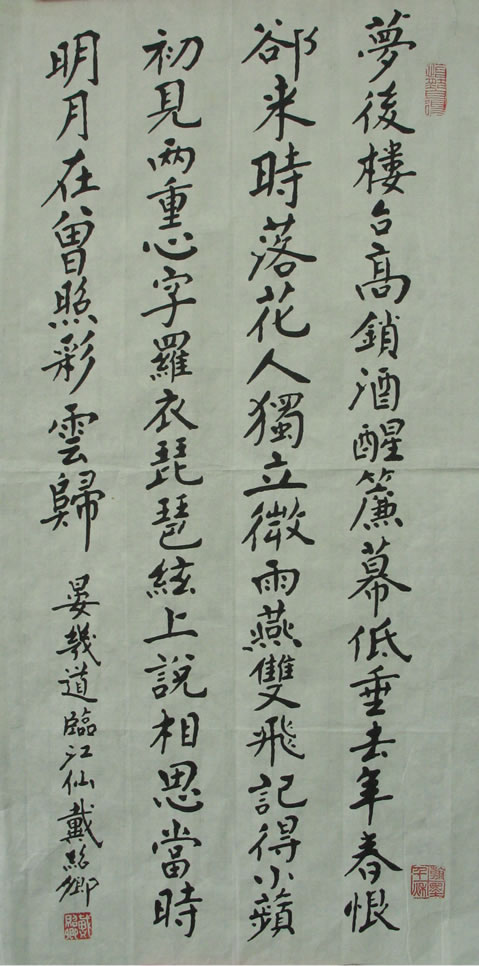 夢後樓台高鎖酒醒簾幕低垂去年春恨
卻來時落花人獨立微雨燕雙飛記得小蘋
初見兩重心字羅衣琵琶絃上說相思當時
明月在曾照彩雲歸
晏幾道臨江仙戴紹卿